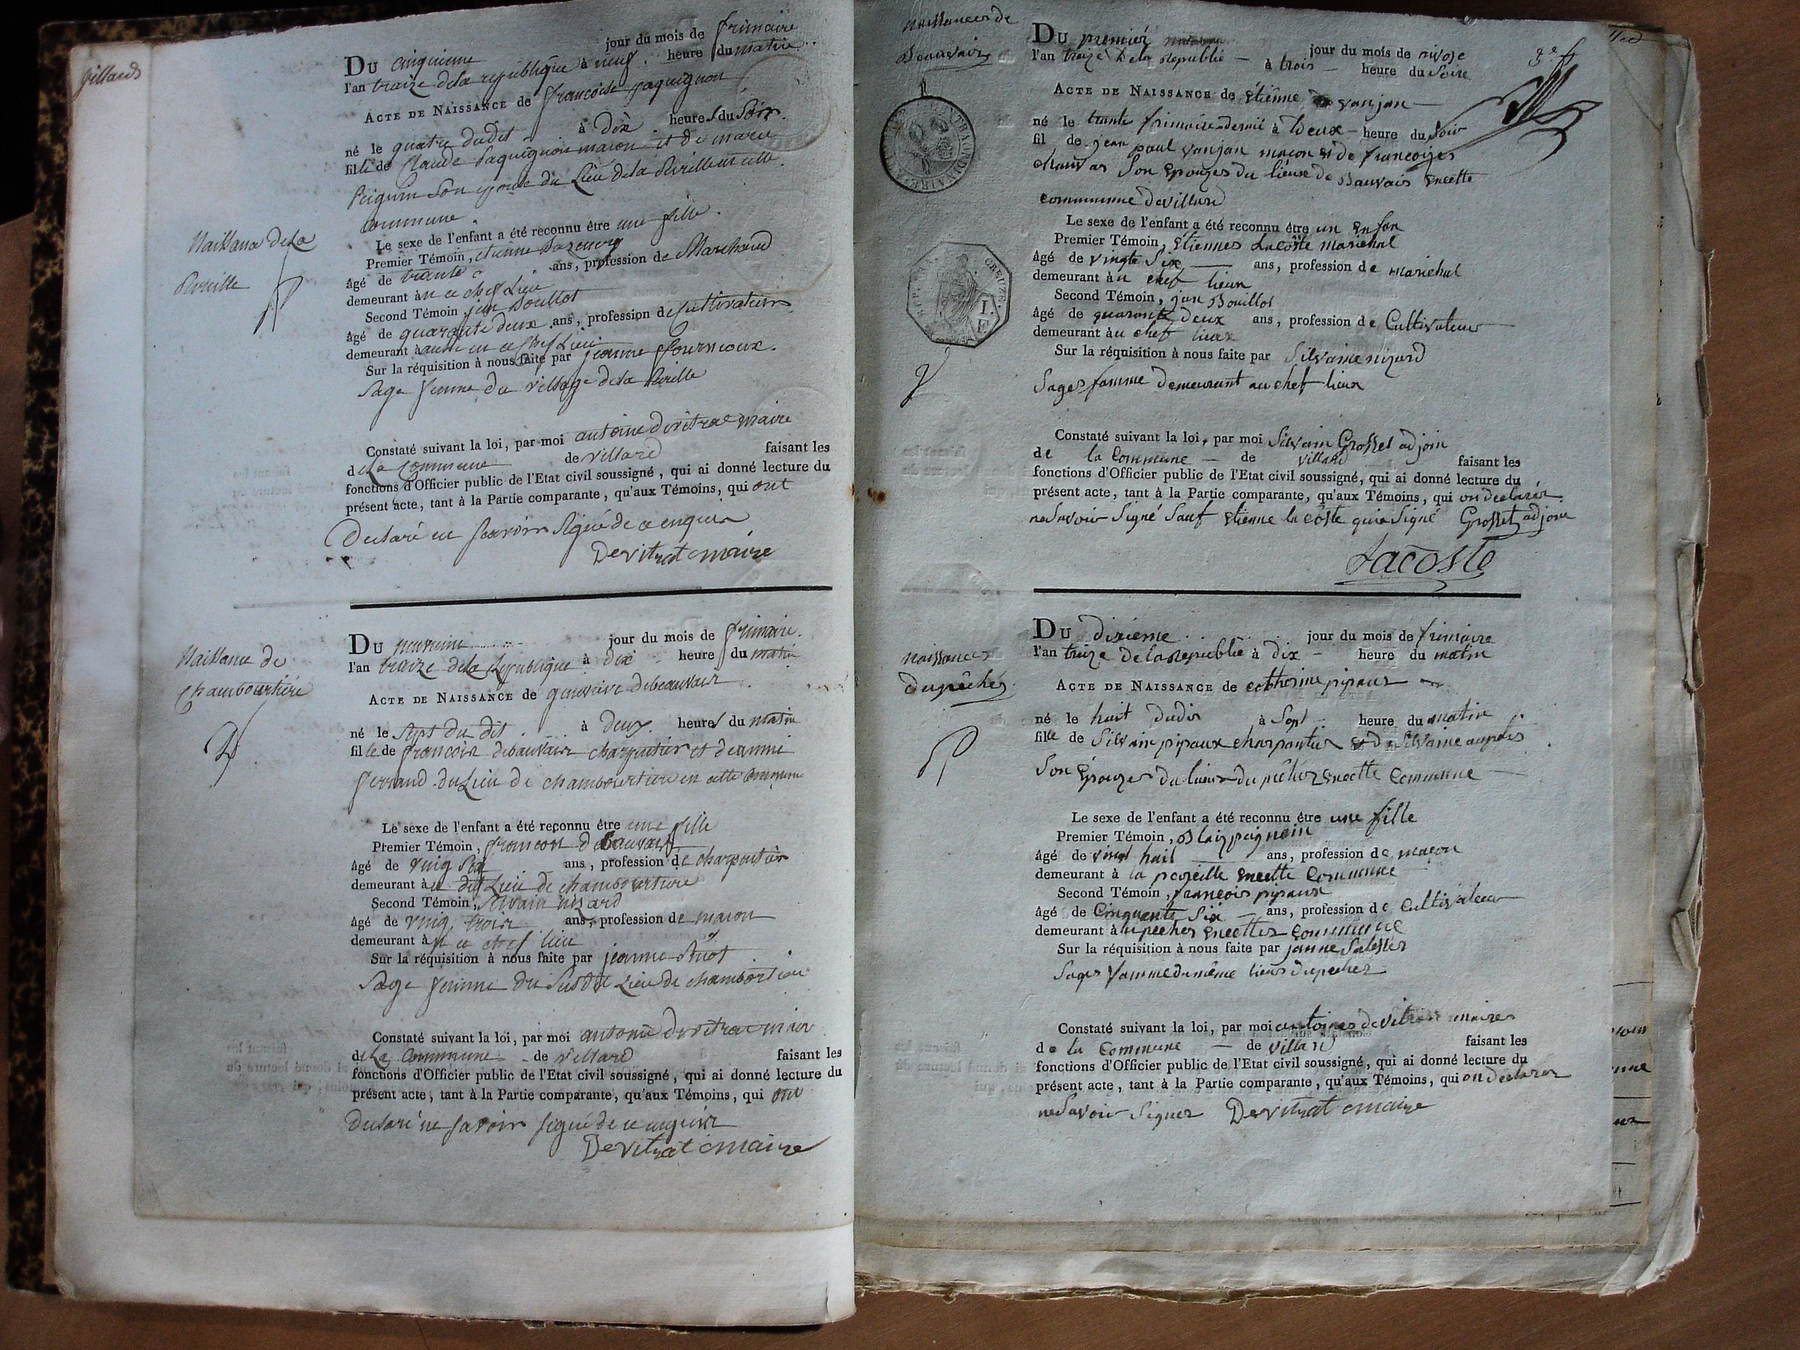 Villard
Du cinquieme jour du mois de frimaire
l'an traize dela republique à neuf heure du matin
Acte de Naissance de francoise paquignon
né le quatre dudit à Dix heures du Soir
fille de Claude paquignon macon et de marie
son epouse du Lieu dela en cette
commune
Naissance dela
Le sexe de l'enfant a été reconnu être une fille.
Premier Témoin, etienne
âgé de trante ans, profession de Marchand
demeurant àu ce chef Lieu
Second Témoin jean Bouillot
âgé de quarante deux ans, profession de Cultivateur
demeurant à aussi en ce chef Lieu
Sur la réquisition à nous faite par jeanne fourneoux.
Sage femme du village dela
Constaté suivant la loi, par moi antoine devitrat maire
dela Commune de villard faisant les
fonctions d'Officier public de l'Etat civil soussigné, qui ai donné lecture du
présent acte, tant à la Partie comparante, qu'aux Témoins, qui ont
Declaré ne scavoir Signé de ce enquis
Devitrat maire
Naissance de
Chambourtiere
Du neuvieme jour du mois de frimaire.
l'an traize dela Republique à dix heure du matin
Acte de Naissance de genevieve debeauvais
né le Sept du dit à deux heures du matin
fille de francois debeauvais charpantier et d'anne
ferrand du Lieu de chambourtiere en cette Commune
Le sexe de l'enfant a été reconnu être une fille
Premier Témoin, francois debeauvais
âgé de ving Six ans, profession de charpantier
demeurant à u dit Lieu de chambourtiere
Second Témoin, Silvain nizard
âgé de ving trois ans, profession de macon
demeurant à u ce chef lieu
Sur la réquisition à nous faite par jeanne
Sage femme du Susdit Lieu de chambortiere
Constaté suivant la loi, par moi antoine devitrat maire
dela Commune de villard faisant les
fonctions d'Officier public de l'Etat civil soussigné, qui ai donné lecture du
présent acte, tant à la Partie comparante, qu'aux Témoins, qui ont
Declaré ne scavoir signé de ce enquis
Devitrat maire
naissances de
Beauvais
Du premier jour du mois de nivose
l'an traize Dela Republie à trois heure du Soire
3e f
Acte de Naissance de Etienne vanjan
né le trante frimaire dernié à Deux heure du Soir
fil de jean paul vanjan maçon et de françoizes
chauvas Son Epouzes du lieuxe de Bauvais encette
commune devillard
Le sexe de l'enfant a été reconnu être un enfan
Premier Témoin, Étiennes Lacôste maréchal
âgé de vingte Six ans, profession de maréchal
demeurant àu chef lieux
Second Témoin, jan Bouillot
âgé de quarante deux ans, profession de Cultivateur
demeurant àu chef lieux
Sur la réquisition à nous faite par Silvaine nizard
Sages famme demeurant au chef lieux
Constaté suivant la loi, par moi Silvain Grosset adjoin
de la Commune de villard faisant les
fonctions d'Officier public de l'Etat civil soussigné, qui ai donné lecture du
présent acte, tant à la Partie comparante, qu'aux Témoins, qui on declarér
ne Savoir Signé Sauf Etienne la côste qui a Signé Grosset adjoin
Lacoste
CREUZE.
naissances
Dupêcher
Du dixieme jour du mois de frimaire
l'an traize de la Republie à dix heure du matin
Acte de Naissance de catherine pipaux
né le huit dudis à Sept heure du matin
fille de Silvain pipaux charpantier et de Silvaine aupois
Son Epouzes du lieux du pêcher encette Commune
Le sexe de l'enfant a été reconnu être une fille
Premier Témoin, Blais
âgé de vingt huit ans, profession de maçon
demeurant à la encette Commune
Second Témoin, françois pipaux
âgé de Cinquante Six ans, profession de Cultivateur
demeurant àu pecher encettes commune
Sur la réquisition à nous faite par janne
Sages famme dumême lieux dupecher
Constaté suivant la loi, par moi antoines devitrat maires
de la Commune de villard faisant les
fonctions d'Officier public de l'Etat civil soussigné, qui ai donné lecture du
présent acte, tant à la Partie comparante, qu'aux Témoins, qui on declarer
ne Savoir Signer Devitrat maire